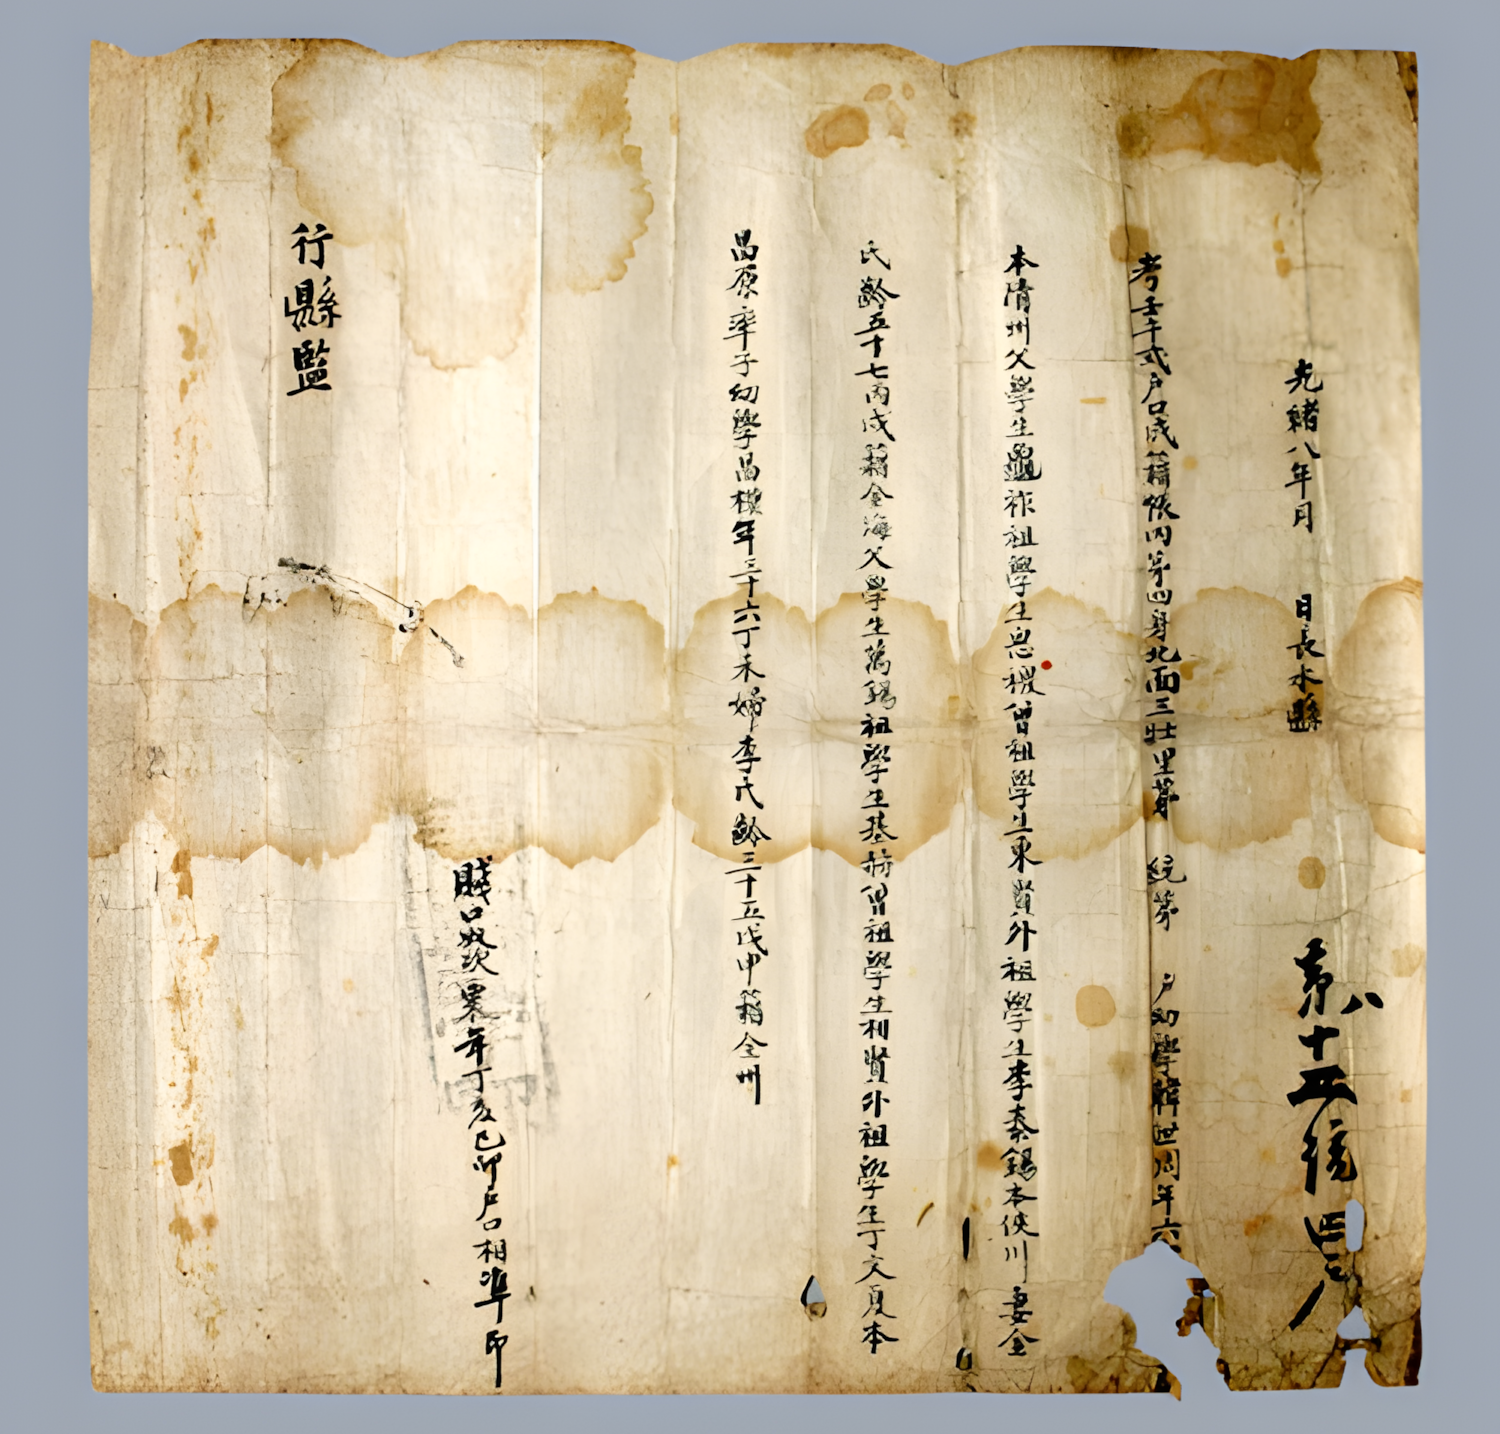 光緖八年月　日長水縣
第八十五統四戶
考壬午式戶口成籍帳內第四身北面三壯里第　統第　戶幼學韓世周年六
本淸州父學生龜祚祖學生思稷曾祖學生東賢外祖學生李泰錫本俠川妻金
氏齡五十七丙戌籍金海父學生萬錫祖學生基　曾祖學生相賢外祖學生丁文夏本
昌原率子幼學昌　年三十六丁未婦李氏齡三十五戊申籍全州
賤口奴　累年丁亥己卯戶口相準印
行縣監